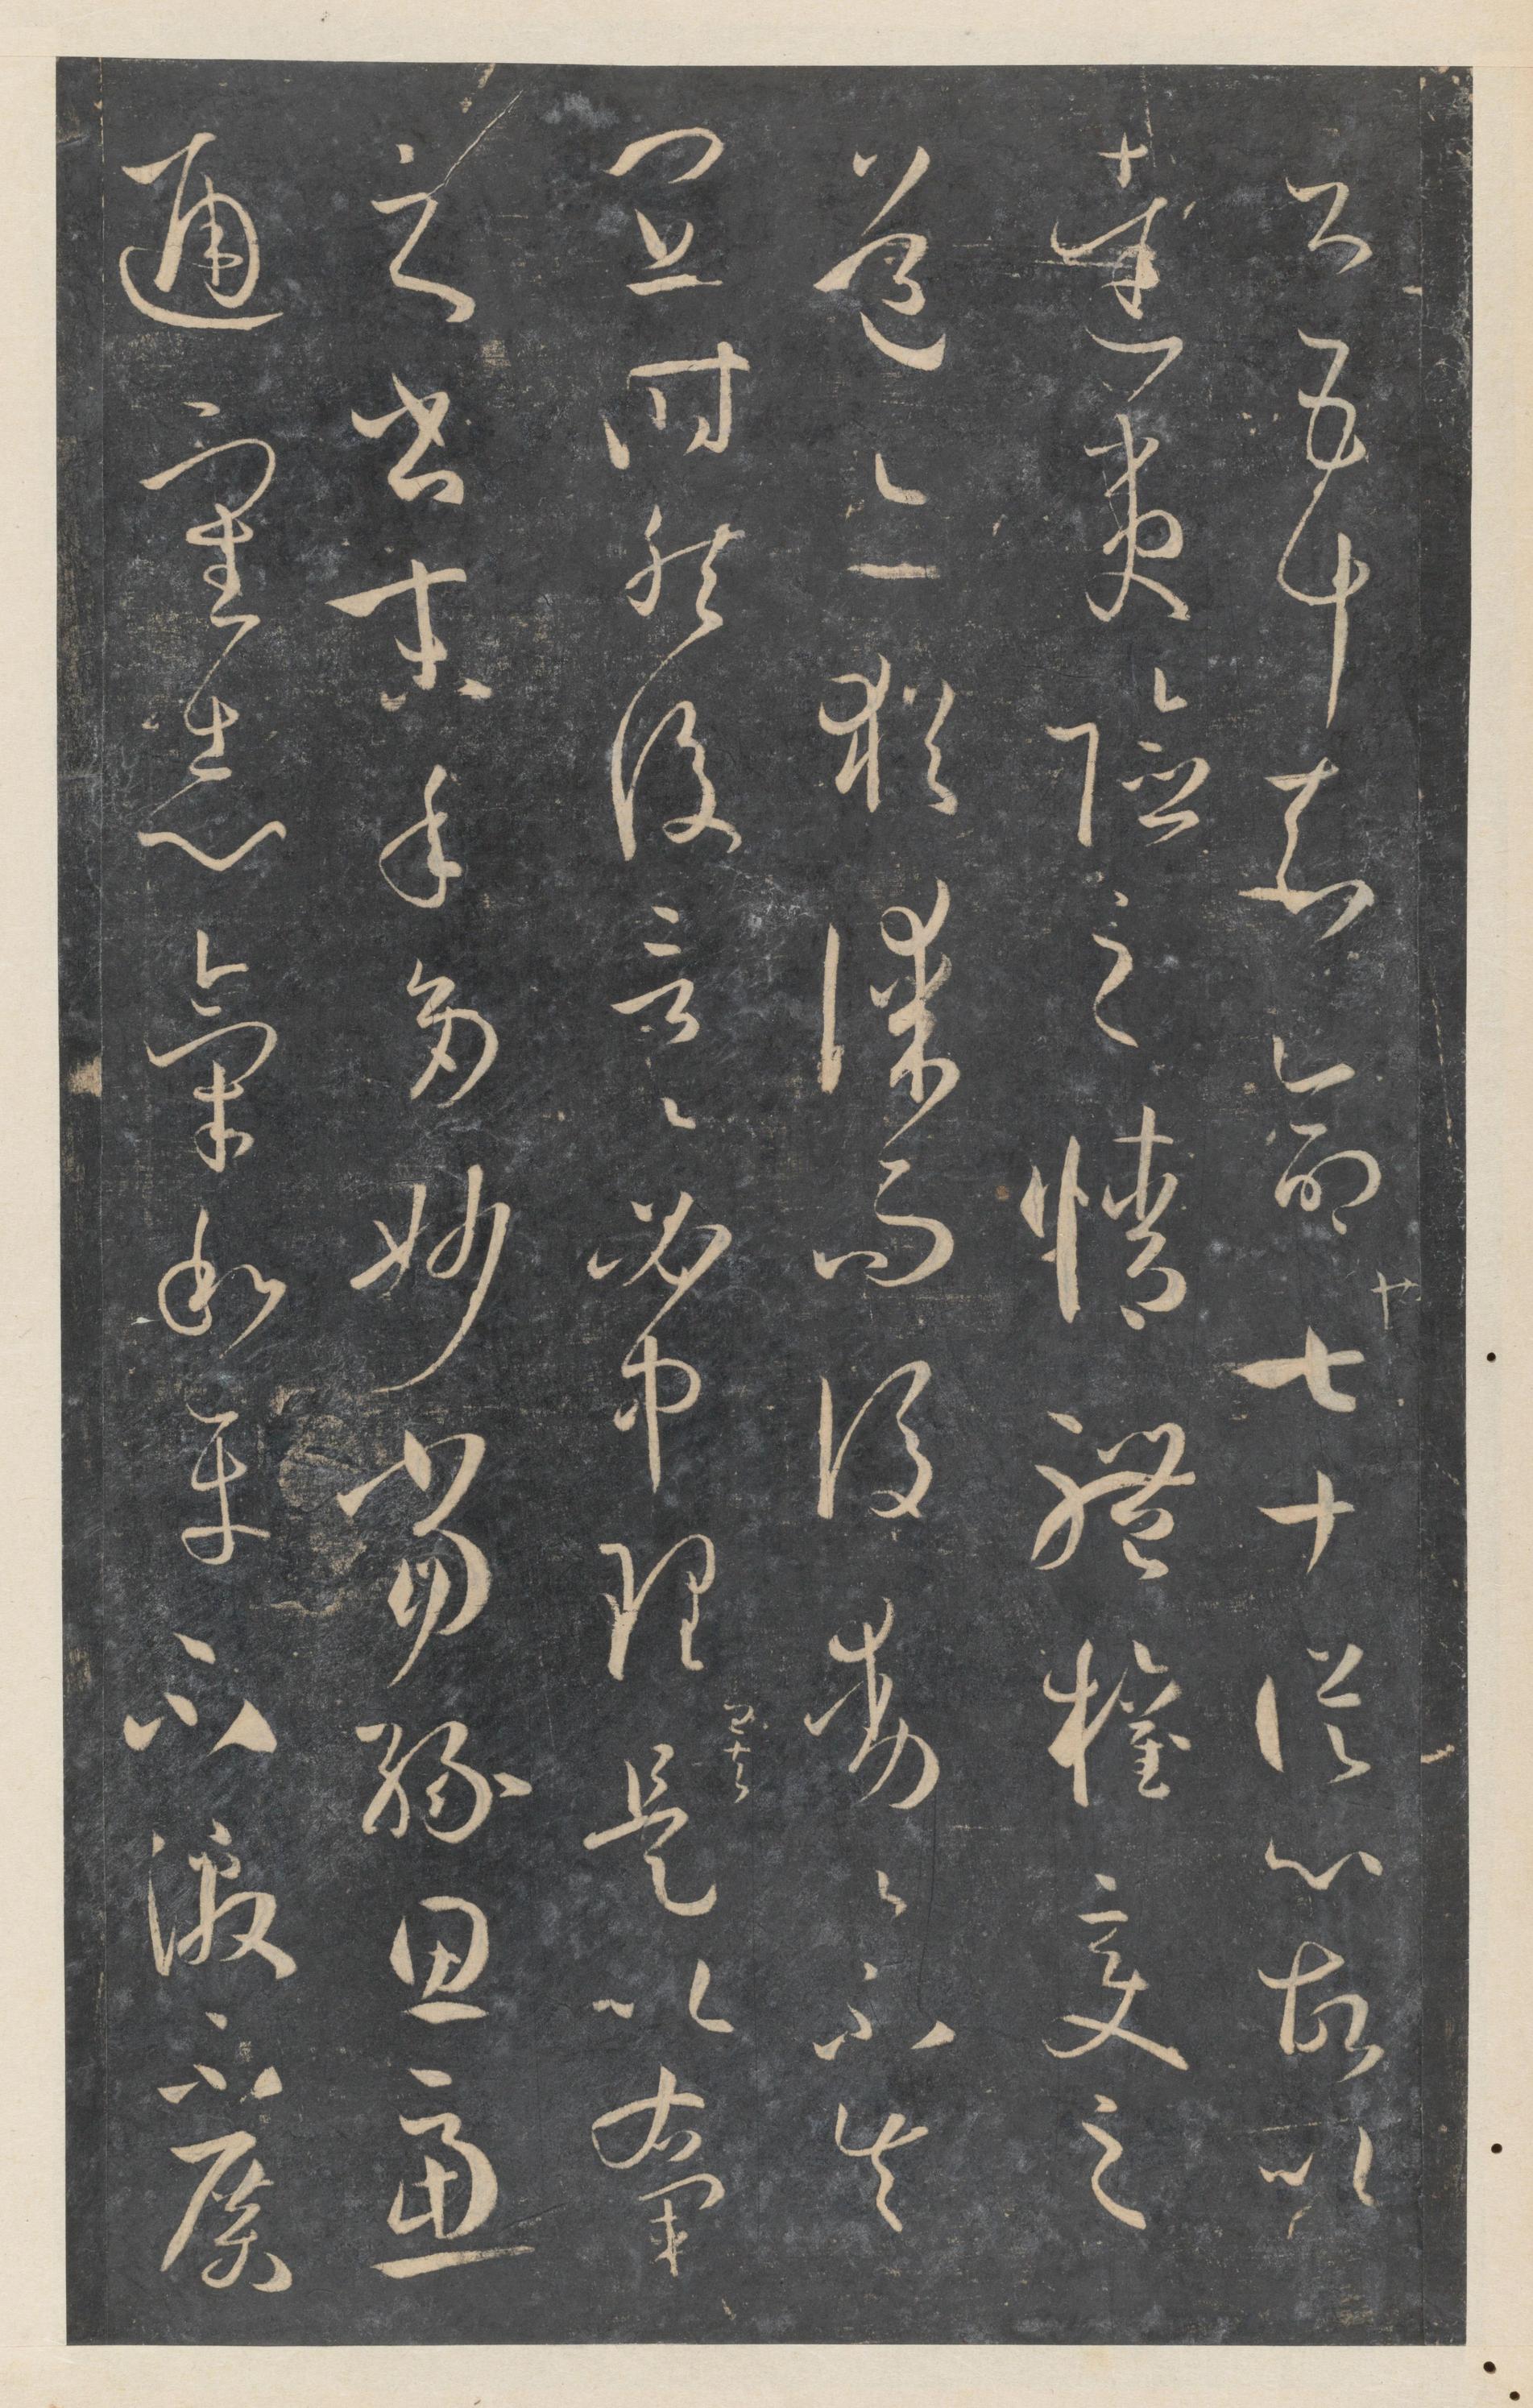 云五十知命也七十從心故以
達夷險之情體權變之
道亦猶謀而後動々不失
宜時然後言々必中理矣是以右軍
之書末年多妙當緣思慮
通審志氣和平不激不厲